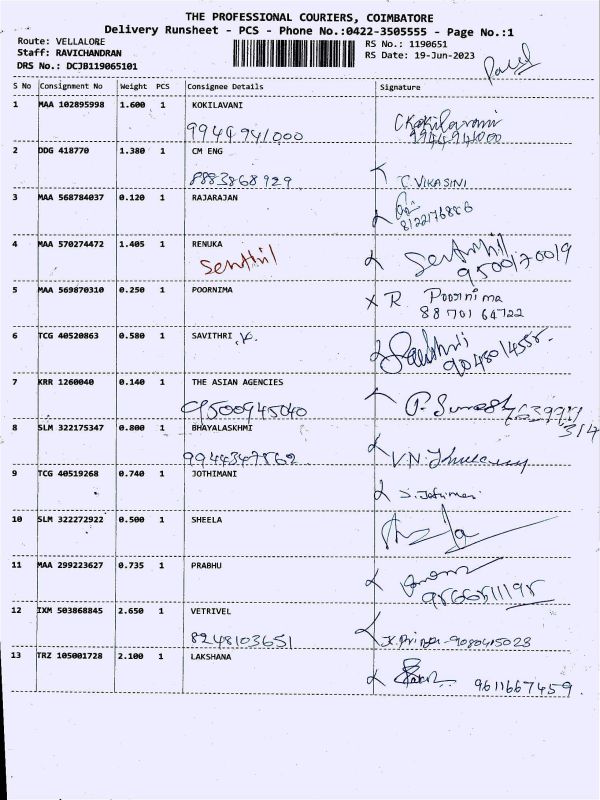 THE PROFESSIONAL COURIERS, COIMBATORE
Delivery Runsheet - PCS - Phone No.:0422-3505555 - Page No.:1
Route: VELLALORE
RS No.: 1190651
Staff: RAVICHANDRAN
RS Date: 19-Jun-2023
DRS No.: DCJB119065101
S No Consignment No Weight PCS Consignee Details Signature
1 MAA 102895998 1.600 1 KOKILAVANI
9944941000 C Kokilavani
9944941000
2 DDG 418770 1.380 1 CM ENG
8883868929 C. VIKASINI
3 MAA 568784037 0.120 1 RAJARAJAN
4 MAA 570274472 1.405 1 RENUKA
Senthil Senthil
9500170019
5 MAA 569870310 0.250 1 POORNIMA
X R Poornima
88701 64722
6 TCG 40520863 0.580 1 SAVITHRI .V. Savithri
7 KRR 1260040 0.140 1 THE ASIAN AGENCIES
9500945040 P. Suresh
8 SLM 322175347 0.800 1 BHAYALASKHMI
9944347562 V.N.
9 TCG 40519268 0.740 1 JOTHIMANI
10 SLM 322272922 0.500 1 SHEELA
11 MAA 299223627 0.735 1 PRABHU
12 IXM 503868845 2.650 1 VETRIVEL
8248103651 9080415023
13 TRZ 105001728 2.100 1 LAKSHANA
9611667459